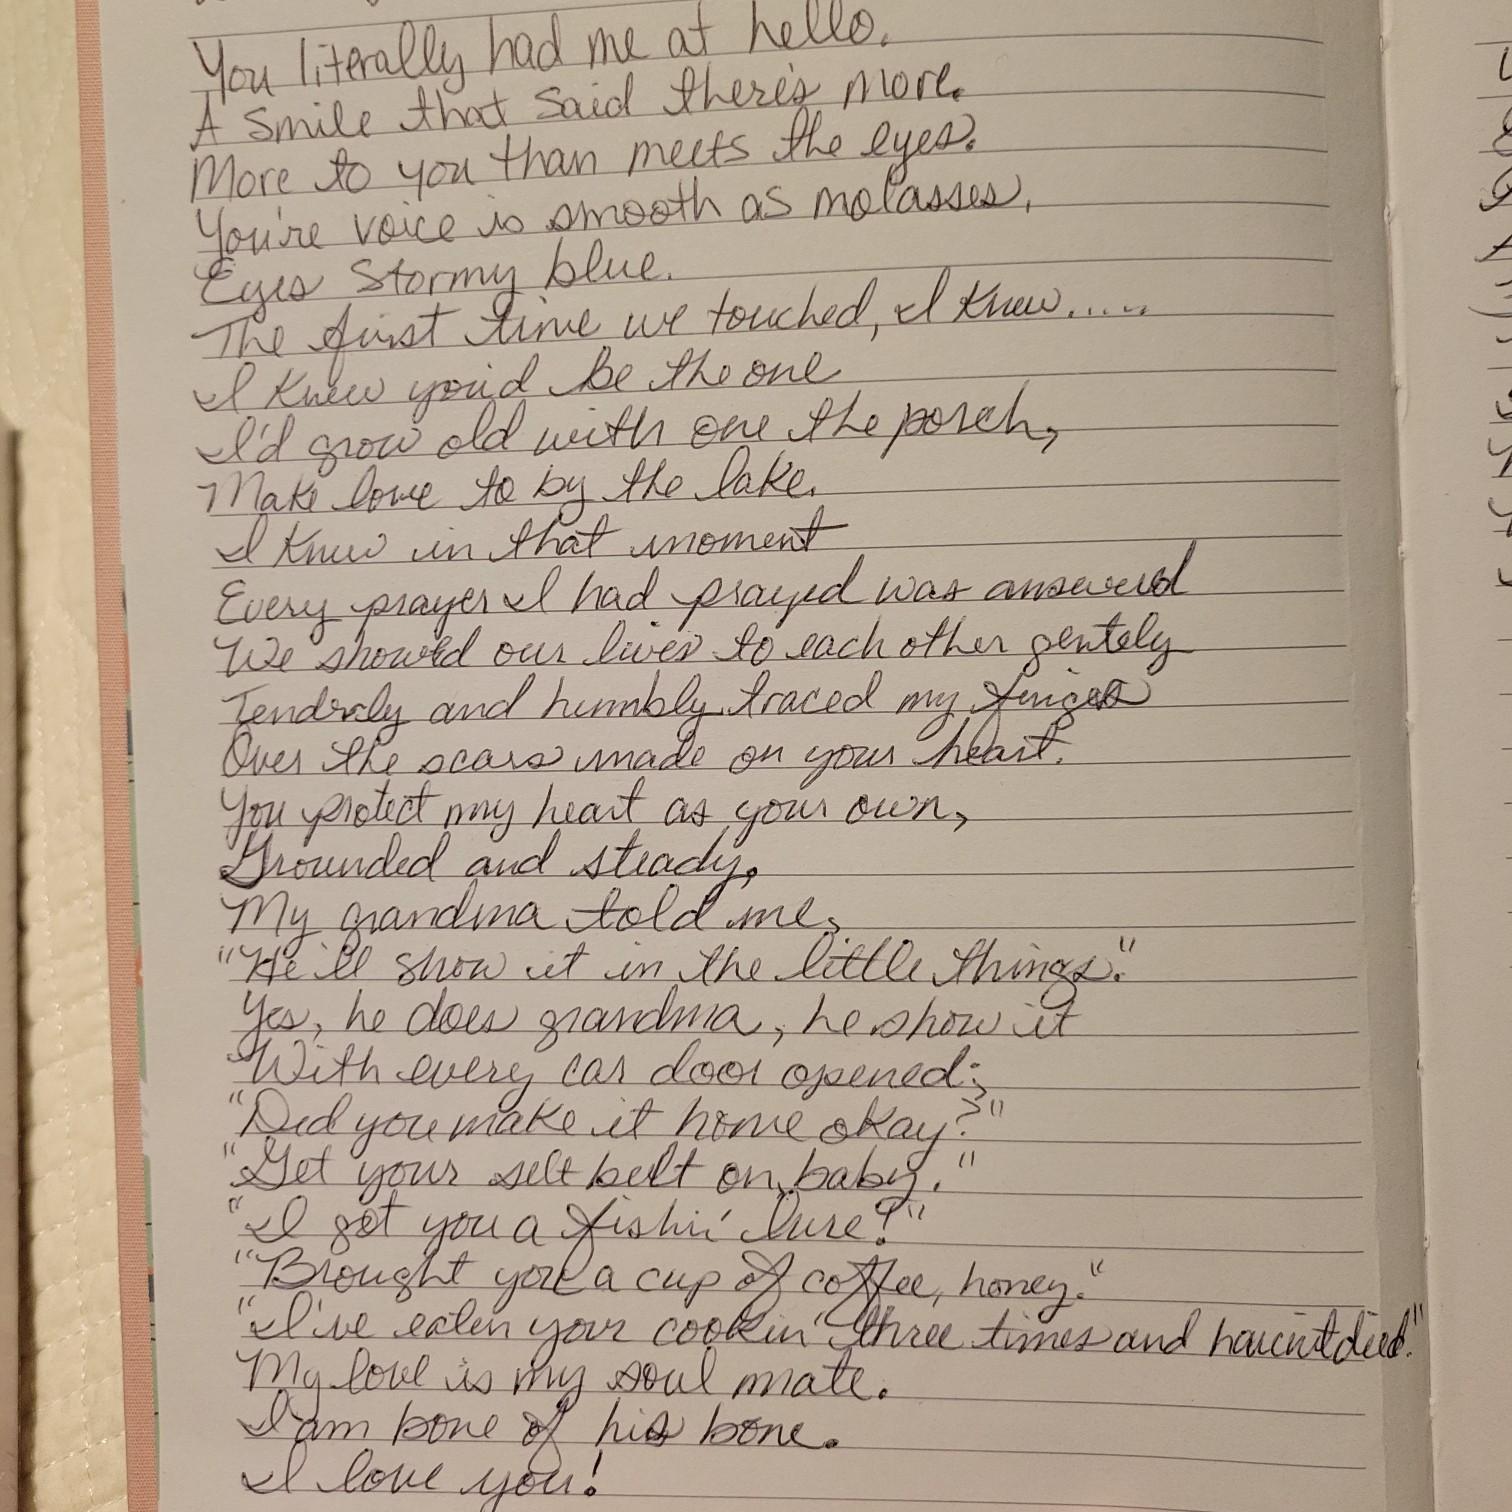 You literally had me at hello.
A smile that said there's more.
More to you than meets the eyes.
You're voice is smooth as molasses,
Eyes stormy blue.
The first time we touched, I knew.....
I knew you'd be the one
I'd grow old with one the porch,
Make love to by the lake.
I knew in that moment
Every prayer I had prayed was answered
We showed our lives to each other gentely
Tenderly and humbly traced my finger
Over the scars made on your heart.
You protect my heart as your own,
Grounded and steady,
My grandma told me,
"He'll show it in the little things."
Yes, he does grandma, he show it
With every car door opened;
"Did you make it home okay?"
"Get your selt belt on, baby."
"I got you a fishin' lure!"
"Brought you a cup of coffee, honey."
"I've eaten your cookin' three times and haven't died."
My love is my soul mate.
I am bone of his bone.
I love you!